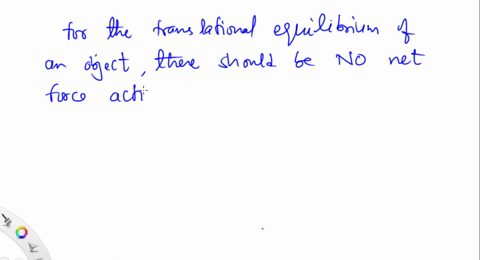 for the translational equilibrium of
an object, there should be NO net
force acti